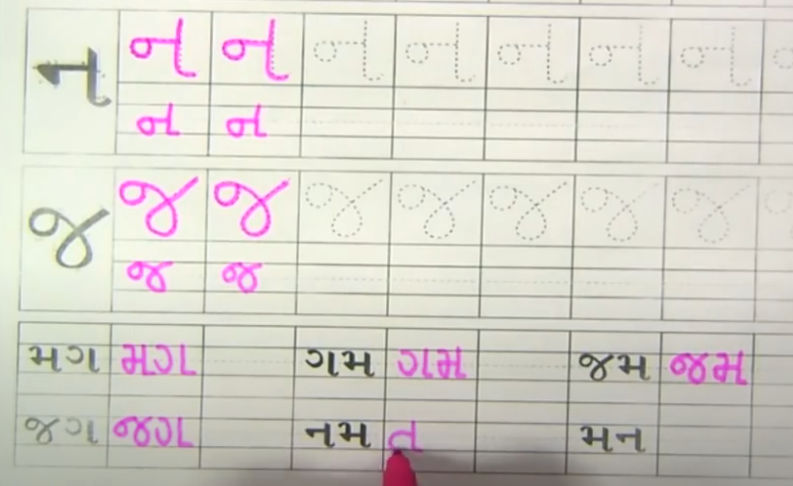 ન ન ન ન ન ન ન ન
ન ન
જ જ જ જ જ જ જ જ
જ જ
મગ મગ ગમ ગમ જમ જમ
જગ જગ નમ ન મન